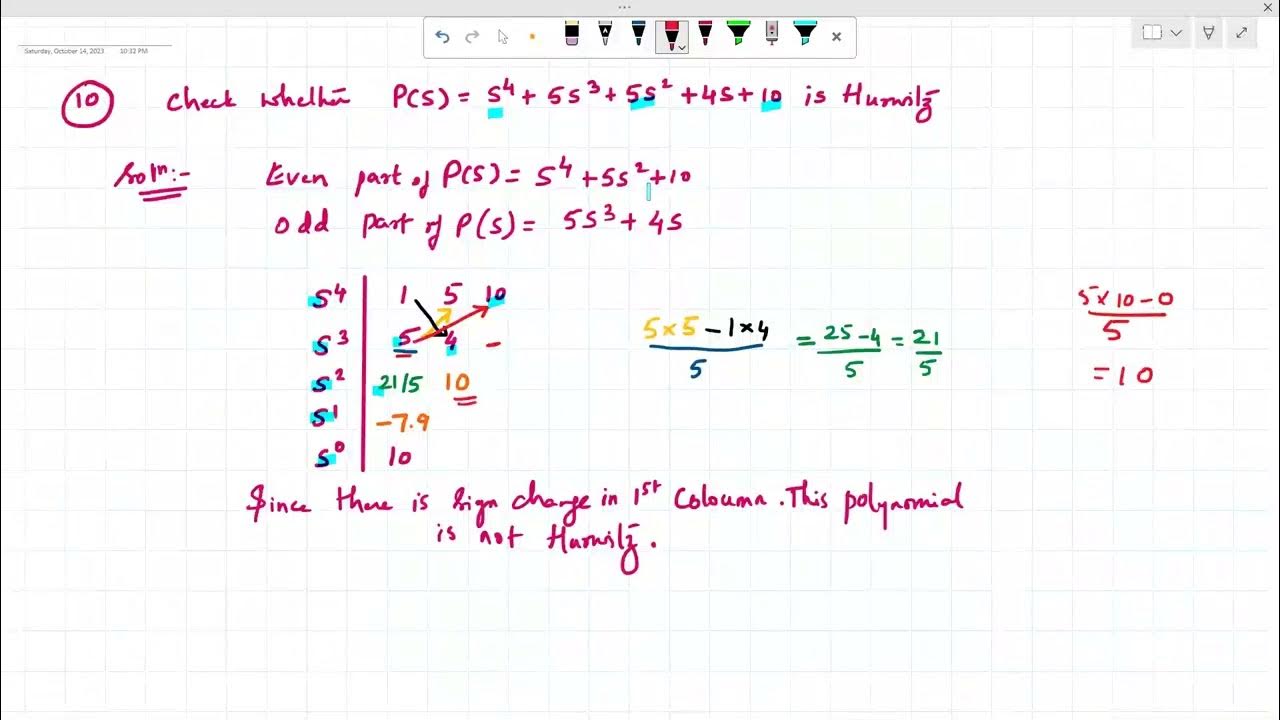 Saturday, October 14, 2023 10:32 PM
10 Check whether P(S) = S⁴ + 5S³ + 5S² + 4S + 10 is Hurwitz
Soln:- Even part of P(S) = S⁴ + 5S² + 10
Odd part of P(S) = 5S³ + 4S
S⁴ 1 5 10
S³ 5 4 -
S² 21/5 10
S¹ -7.9
S⁰ 10
5×5 - 1×4
5
= 25-4 = 21
5 5
5×10-0
5
= 10
Since there is sign change in 1st Coloumn. This polynomial
is not Hurwitz.